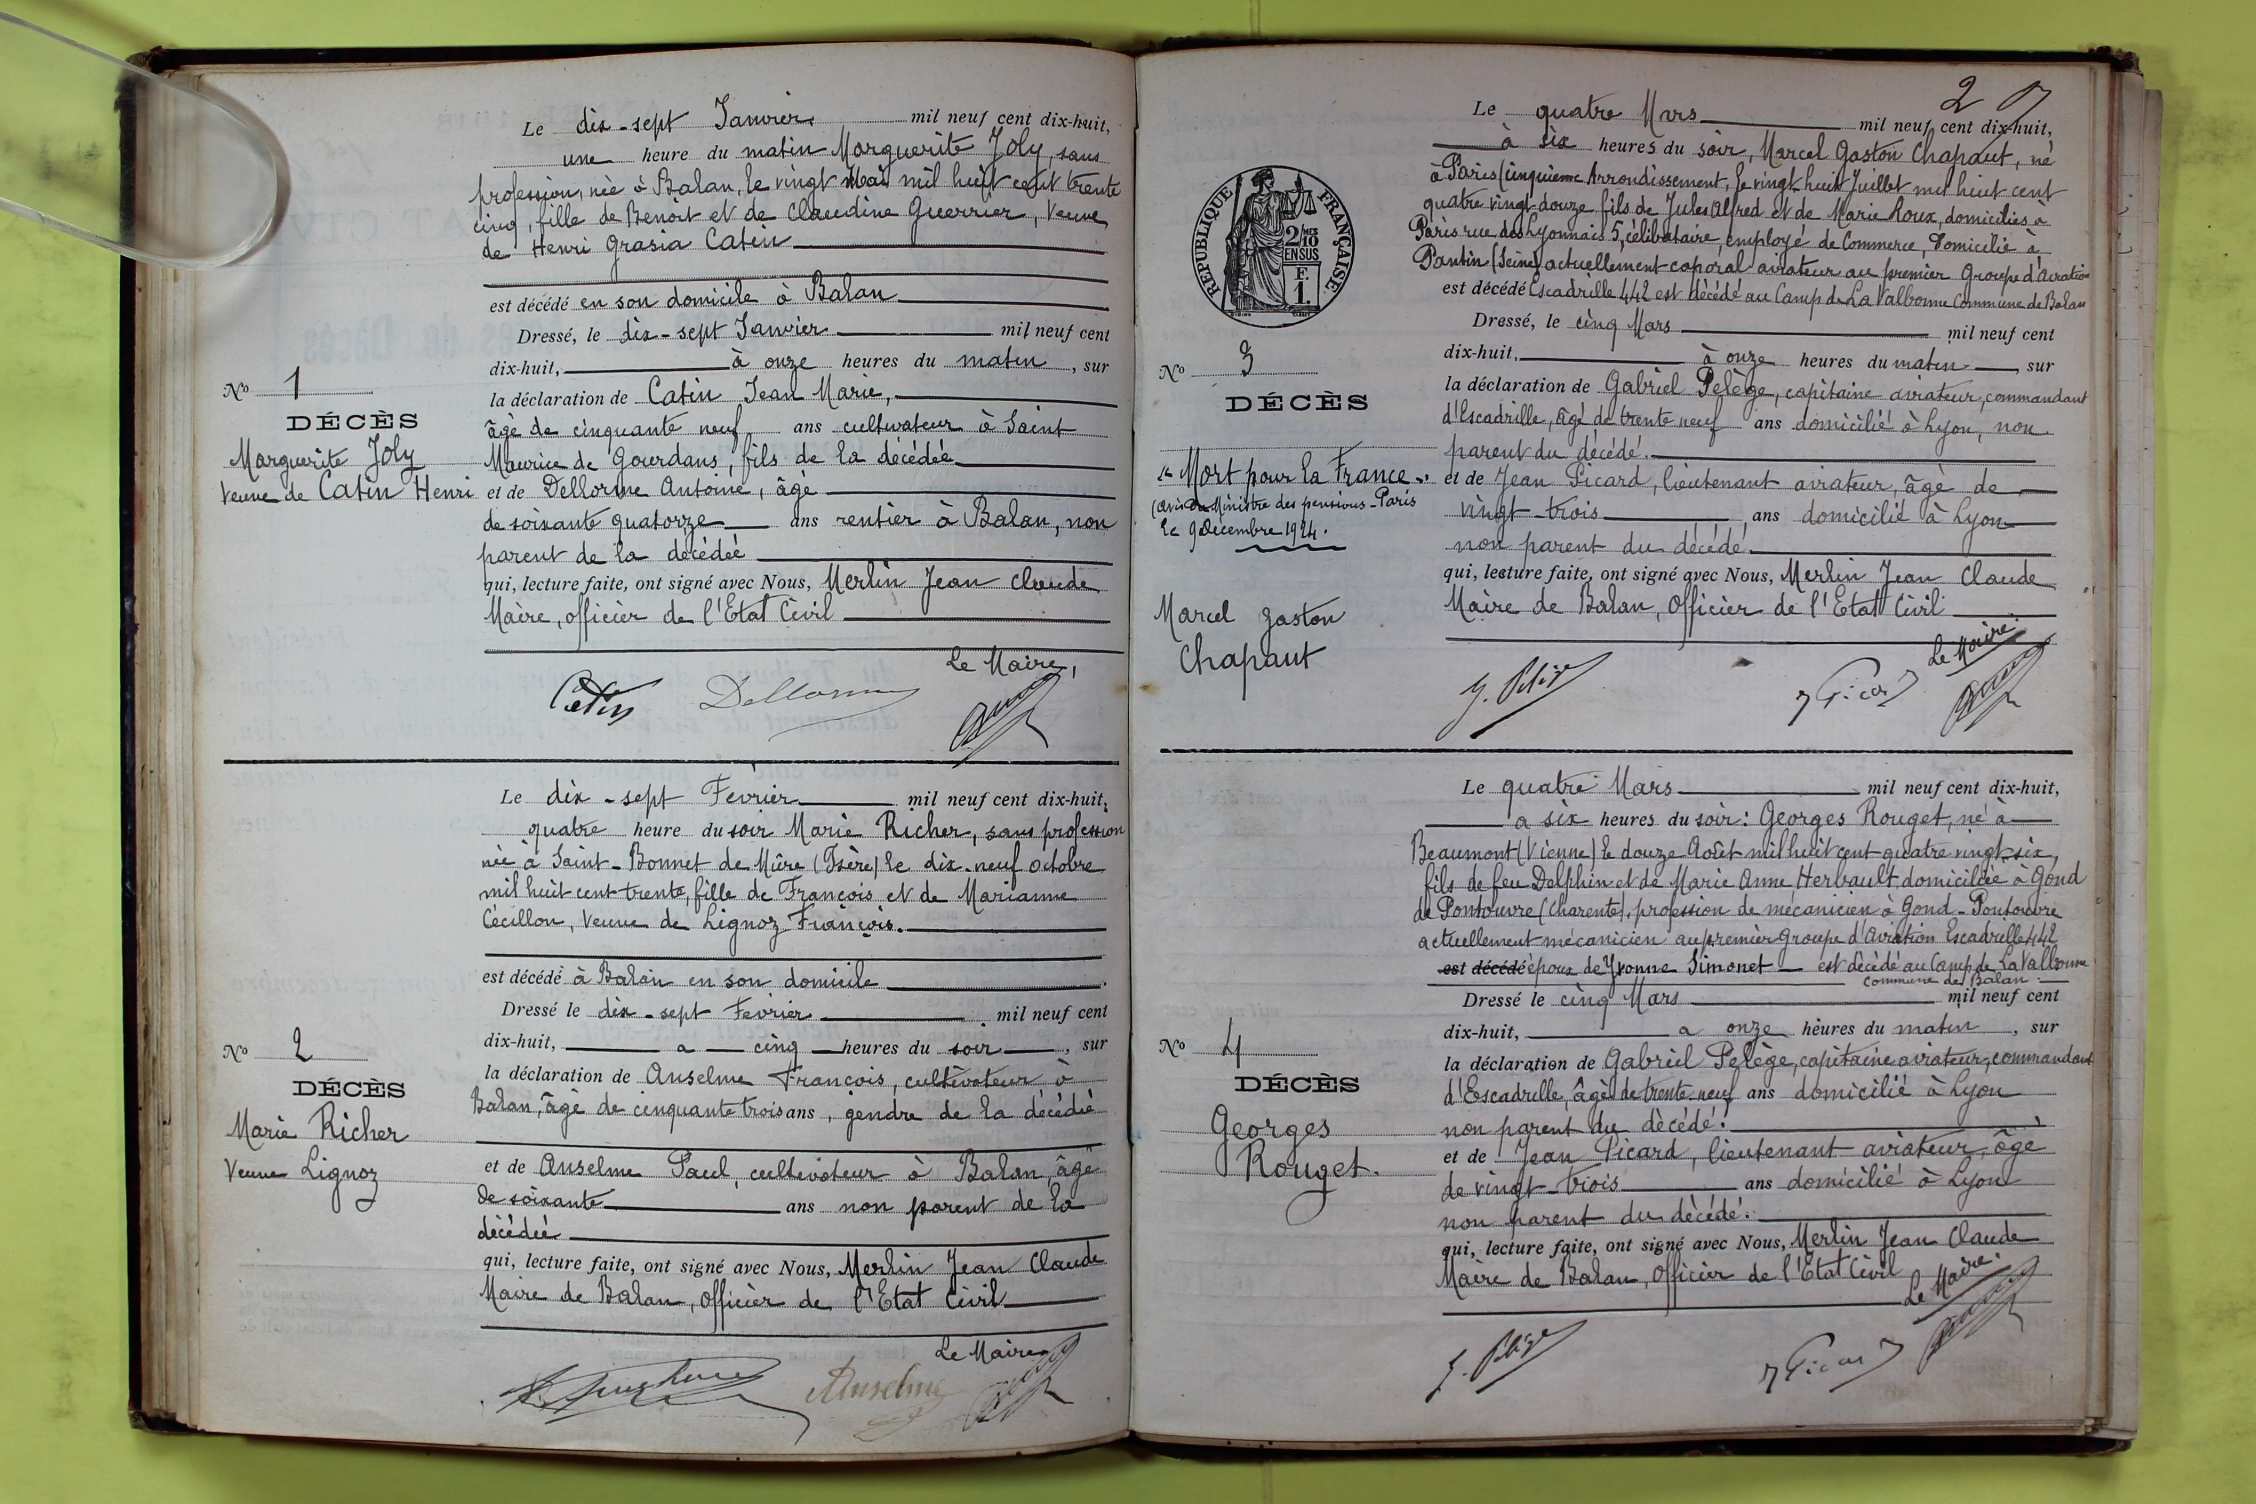 Le dix-sept Janvier mil neuf cent dix-huit,
une heure du matin Marguerite Joly, sans
profession, née à Balan, le vingt Mai mil huit cent trente
cinq, fille de Benoit et de Claudine Guerrier, Veuve
de Henri Grasia Catin
est décédé en son domicile à Balan
Dressé, le dix-sept Janvier mil neuf cent
dix-huit, à onze heures du matin, sur
No 1
DÉCÈS
Marguerite Joly
Veuve de Catin Henri
la déclaration de Catin Jean Marie,
âgé de cinquante neuf ans cultivateur à Saint
Maurice de Gourdans, fils de la décédée
et de Dellorme Antoine, âgé
de soixante quatorze ans rentier à Balan, non
parent de la décédée
qui, lecture faite, ont signé avec Nous, Merlin Jean Claude
Maire, officier de l'Etat Civil
Le Maire,
Catin Dellorme
Le dix-sept Fevrier mil neuf cent dix-huit,
quatre heure du soir Marie Richer, sans profession
née à Saint-Bonnet de Mûre (Isère) le dix-neuf octobre
mil huit cent trente, fille de François et de Marianne
Cécillon, Veuve de Lignoz François.
est décédé à Balan en son domicile
Dressé le dix-sept Fevrier mil neuf cent
dix-huit, a cinq heures du soir, sur
No 2
DÉCÈS
Marie Richer
Veuve Lignoz
la déclaration de Anselme François, cultivateur à
Balan, âgé de cinquante trois ans, gendre de la décédée
et de Anselme Paul, cultivateur à Balan, âgé
de soixante ans non parent de la
décédée
qui, lecture faite, ont signé avec Nous, Merlin Jean Claude
Maire de Balan, Officier de l'Etat Civil
Le Maire
Anselme
2
Le quatre Mars mil neuf cent dix-huit,
à six heures du soir, Marcel Gaston Chapaut, né
à Paris (cinquième Arrondissement, le vingt-huit Juillet mil huit cent
quatre vingt-douze fils de Jules Alfred et de Marie Roux, domiciliés à
Paris rue des Lyonnais 5, célibataire, employé de Commerce, Domicilié à
Pantin (Seine) actuellement caporal aviateur au premier Groupe d'Aviation
est décédé Escadrille 442 est décédé au Camp de La Valbonne Commune de Balan
Dressé, le cinq Mars mil neuf cent
dix-huit, à onze heures du matin, sur
RÉPUBLIQUE FRANÇAISE
2/10 MES
EN SUS
F.
1.
No 3
DÉCÈS
"Mort pour la France"
(avis du Ministre des pensions-Paris
le 9 décembre 1924.
Marcel Gaston
Chapaut
la déclaration de Gabriel Pelège, capitaine aviateur, commandant
d'Escadrille, âgé de trente neuf ans domicilié à Lyon, non
parent du décédé.
et de Jean Picard, lieutenant aviateur, âgé de
vingt-trois ans domicilié à Lyon
non parent du décédé
qui, lecture faite, ont signé avec Nous, Merlin Jean Claude
Maire de Balan, Officier de l'Etat Civil
Le Maire.
G. Pelège J Picard
Le quatre Mars mil neuf cent dix-huit,
a six heures du soir: Georges Rouget, né à
Beaumont (Vienne) le douze Août mil huit cent quatre vingt-six,
fils de feu Delphin et de Marie Anne Hervault, domiciliée à Gond
de Pontouvre (Charente), profession de mécanicien à Gond-Pontouvre
actuellement mécanicien au premier Groupe d'Aviation Escadrille 442
est décédé époux de Yvonne Simonet est décédé au Camp de La Valbonne
Commune de Balan
Dressé le cinq Mars mil neuf cent
dix-huit, a onze heures du matin, sur
No 4
DÉCÈS
Georges
Rouget.
la déclaration de Gabriel Pelège, capitaine aviateur, commandant
d'Escadrille, âgé de trente-neuf ans domicilié à Lyon
non parent du décédé.
et de Jean Picard, lieutenant aviateur, âgé
de vingt-trois ans domicilié à Lyon
non parent du décédé.
qui, lecture faite, ont signé avec Nous, Merlin Jean Claude
Maire de Balan, Officier de l'Etat Civil
Le Maire.
G. Pelège J Picard